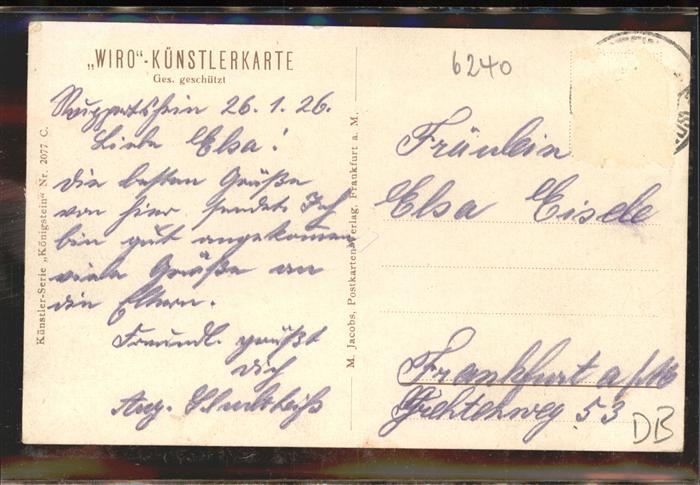 „WIRO“-KÜNSTLERKARTE
Ges. geschützt
Ruppertshein 26.1.26.
Liebe Elsa!
Die besten Grüße
von hier sendet Ich
bin gut angekommen
viele Grüße an
die Eltern.
Freundl. grüßt
Dich
Aug.
Künstler-Serie „Königstein“ Nr. 2077 C.
M. Jacobs, Postkarten-Verlag, Frankfurt a. M.
6240
Fräulein
Elsa Eisele
Frankfurt a/M
53
DB